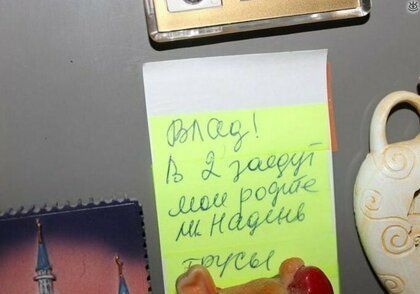 Влад!
В 2 заедут
мои родите
ли. Надень
трусы